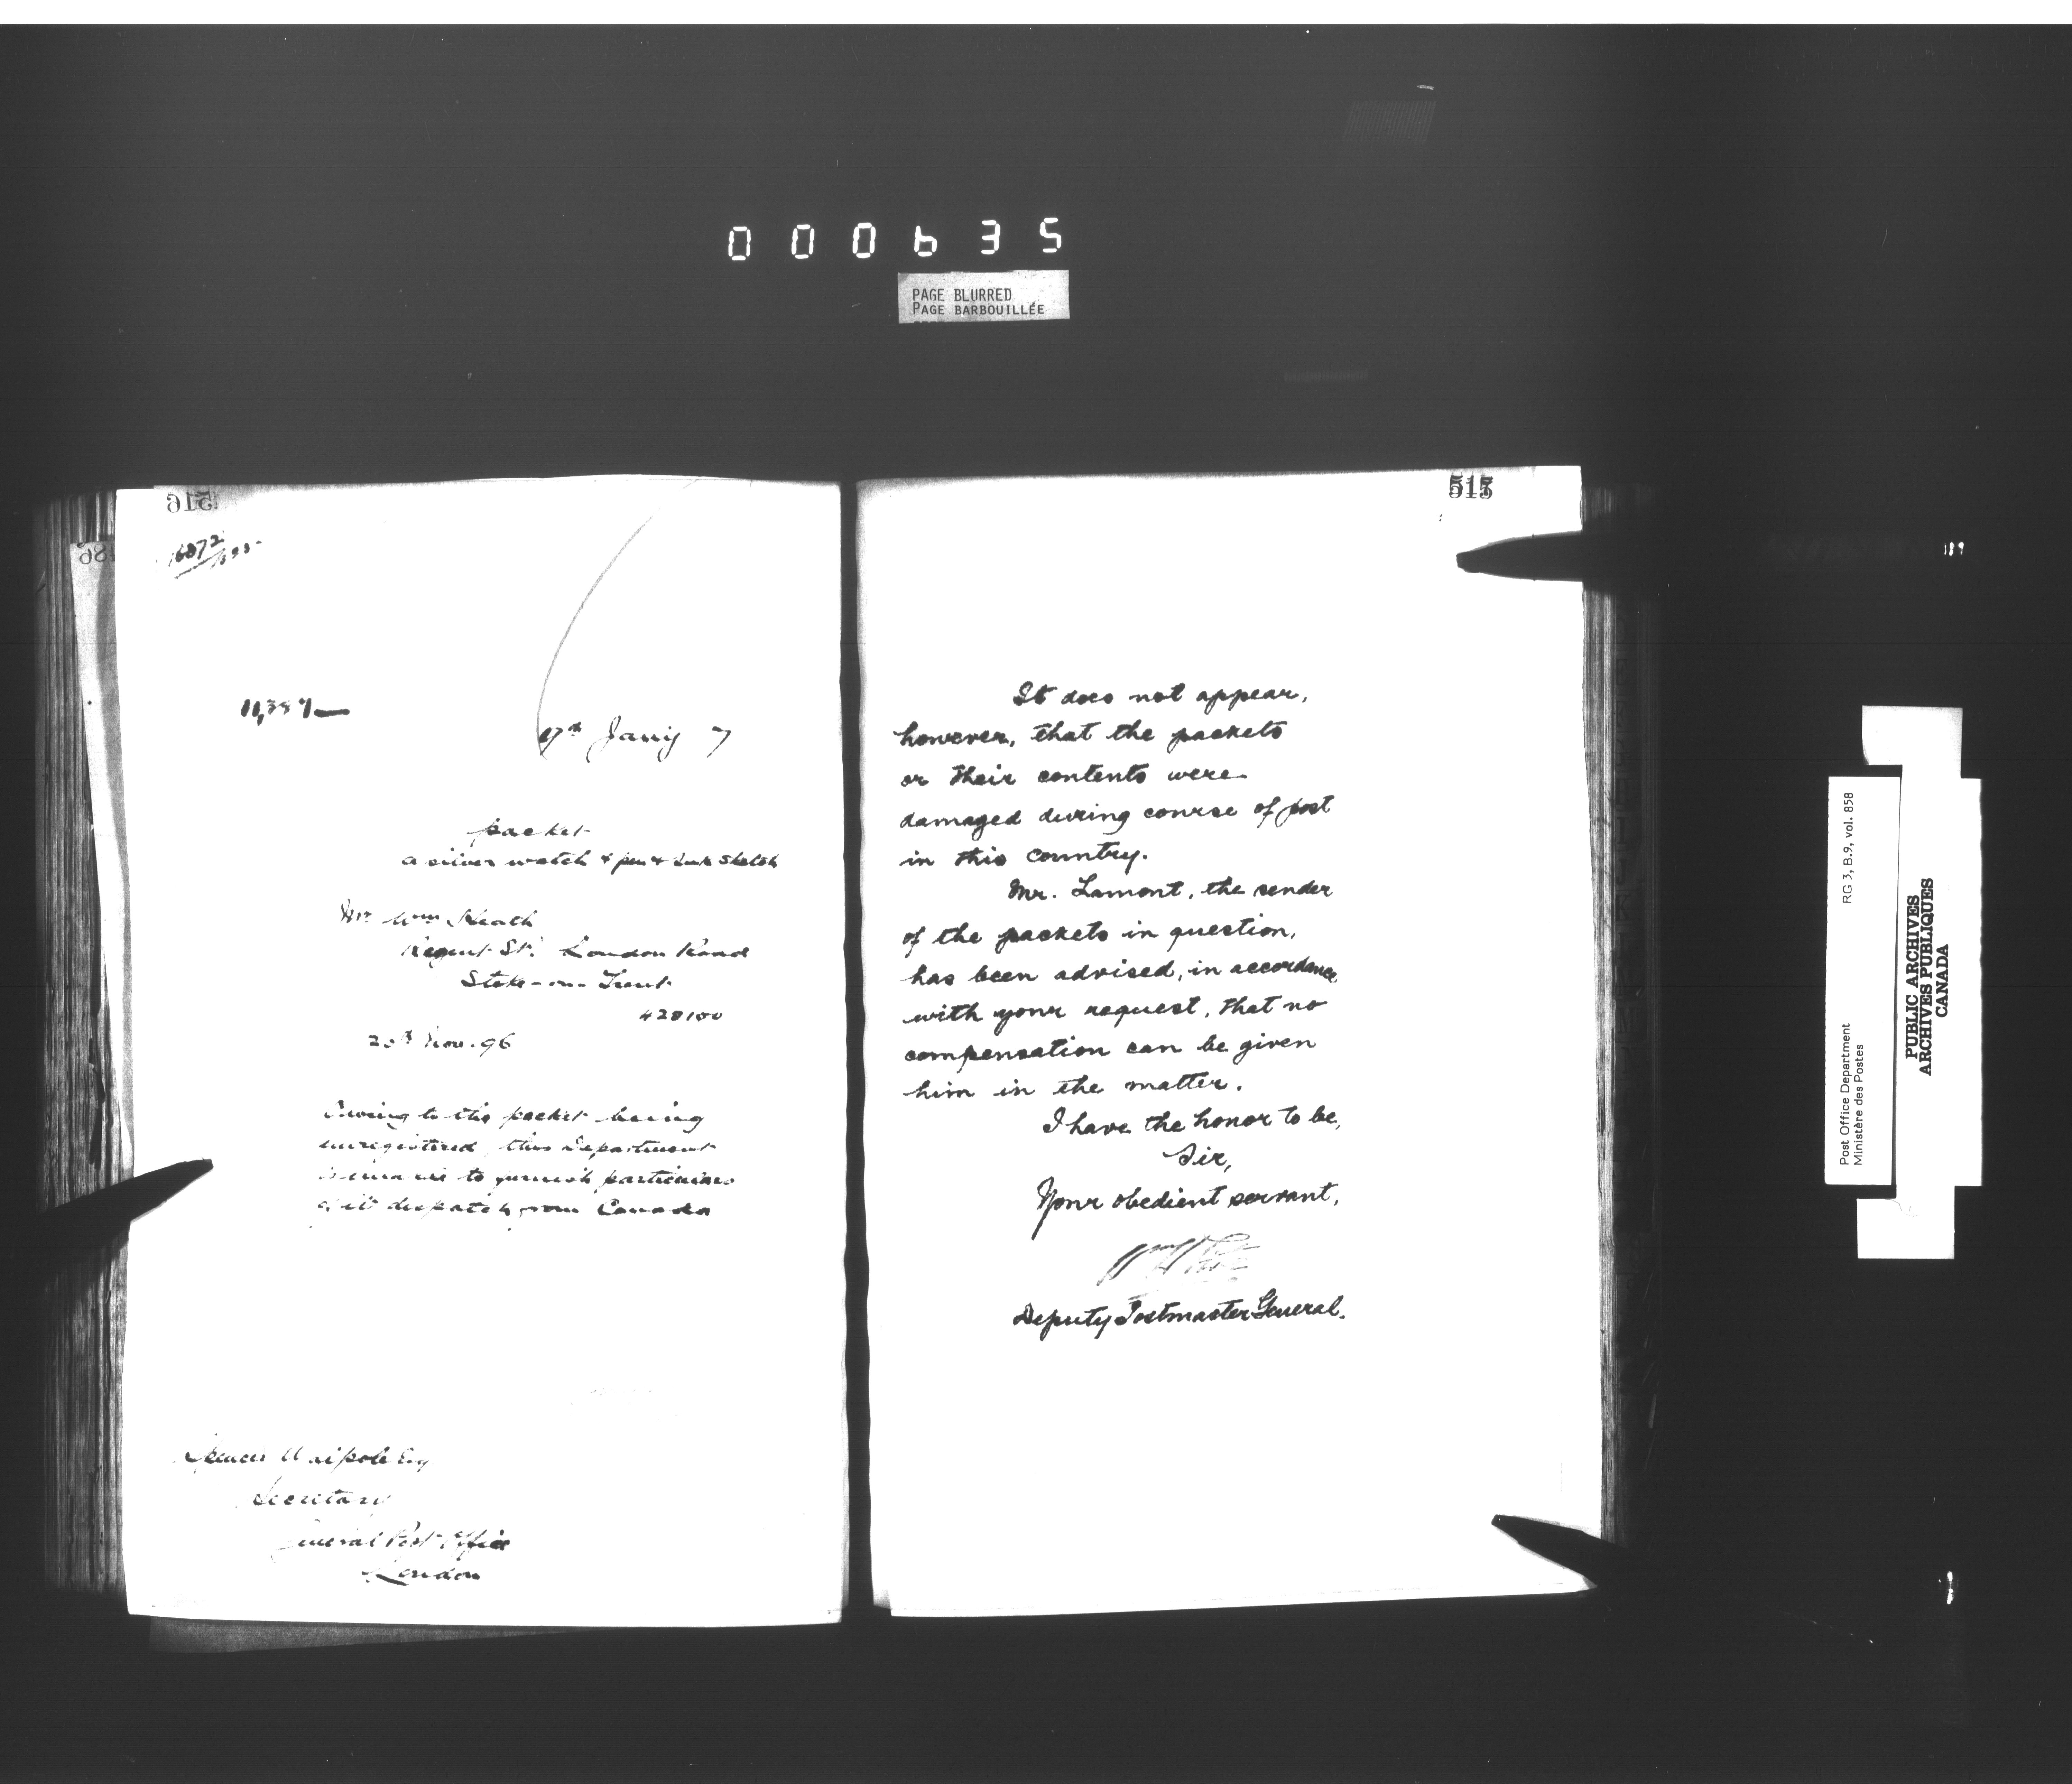 000635
PAGE BLURRED
PAGE BARBOUILLÉE
516
11,387
17th Jany 7
packet
a silver watch & pen & Ink Sketch
Mr Wm Heath
Regent St. London Road
Stoke-on-Trent
428100
20th Nov. 96
Owing to this packet being
unregistered this Department
is unable to furnish particulars
of its despatch from Canada
Spencer Walpole Esq
Secretary
General Post Office
London
517
It does not appear,
however, that the packets
or their contents were
damaged during course of post
in this country.
Mr. Lamont, the sender
of the packets in question,
has been advised, in accordance
with your request, that no
compensation can be given
him in the matter.
I have the honor to be,
Sir,
Your obedient servant,
Deputy Postmaster General.
Post Office Department
Ministère des Postes
RG 3, B.9, vol. 858
PUBLIC ARCHIVES
ARCHIVES PUBLIQUES
CANADA